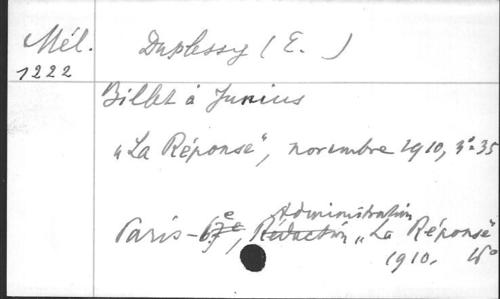 Mél.
1222
Duplessy (E. )
Billet à Junius
„La Réponse“, novembre 1910, 3°-35
Administration
Paris-6e, Rédaction „La Réponse“
1910. in